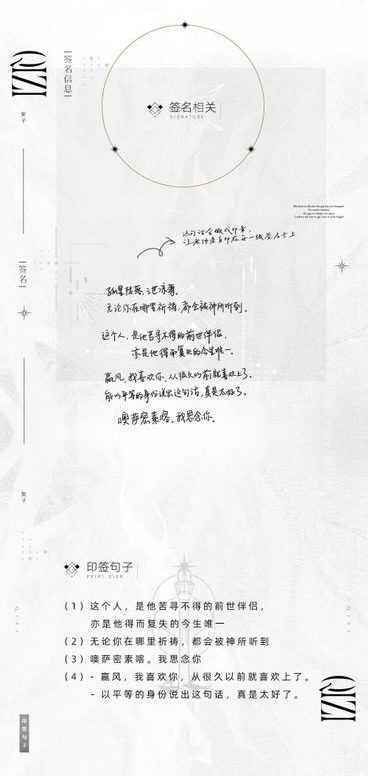 QIZI
签名信息
契子
签名相关
SIGNATURE
这句话会做成印章，
让老师亲自印在每一张签名卡上
签名
无论你在哪里祈祷，都会被神所听到。
这个人，是他苦寻不得的前世伴侣，
亦是他得而复失的今生唯一。
嬴风，我喜欢你，从很久以前就喜欢上了。
能以平等的身份说出这句话，真是太好了。
噢萨密素喀，我思念你。
契子
印签句子
PRINT SIGN.
（1）这个人，是他苦寻不得的前世伴侣，
亦是他得而复失的今生唯一
（2）无论你在哪里祈祷，都会被神所听到
（3）噢萨密素喀。我思念你
（4）- 嬴风，我喜欢你，从很久以前就喜欢上了。
- 以平等的身份说出这句话，真是太好了。
QIZI
QIZI
QIZI
印签句子